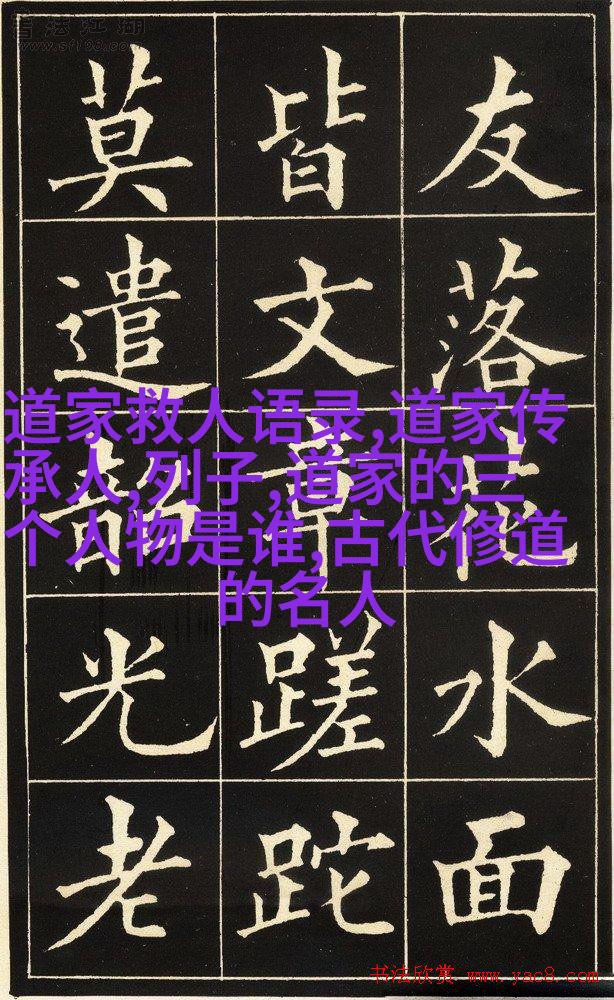 书法江湖
www.sf108.com
友落花水面
皆文章蹉跎
莫遣韶光老
道家救人语录,道家传
承人,列子,道家的三
个人物是谁,古代修道
的名人
书法欣赏 www.yac8.com